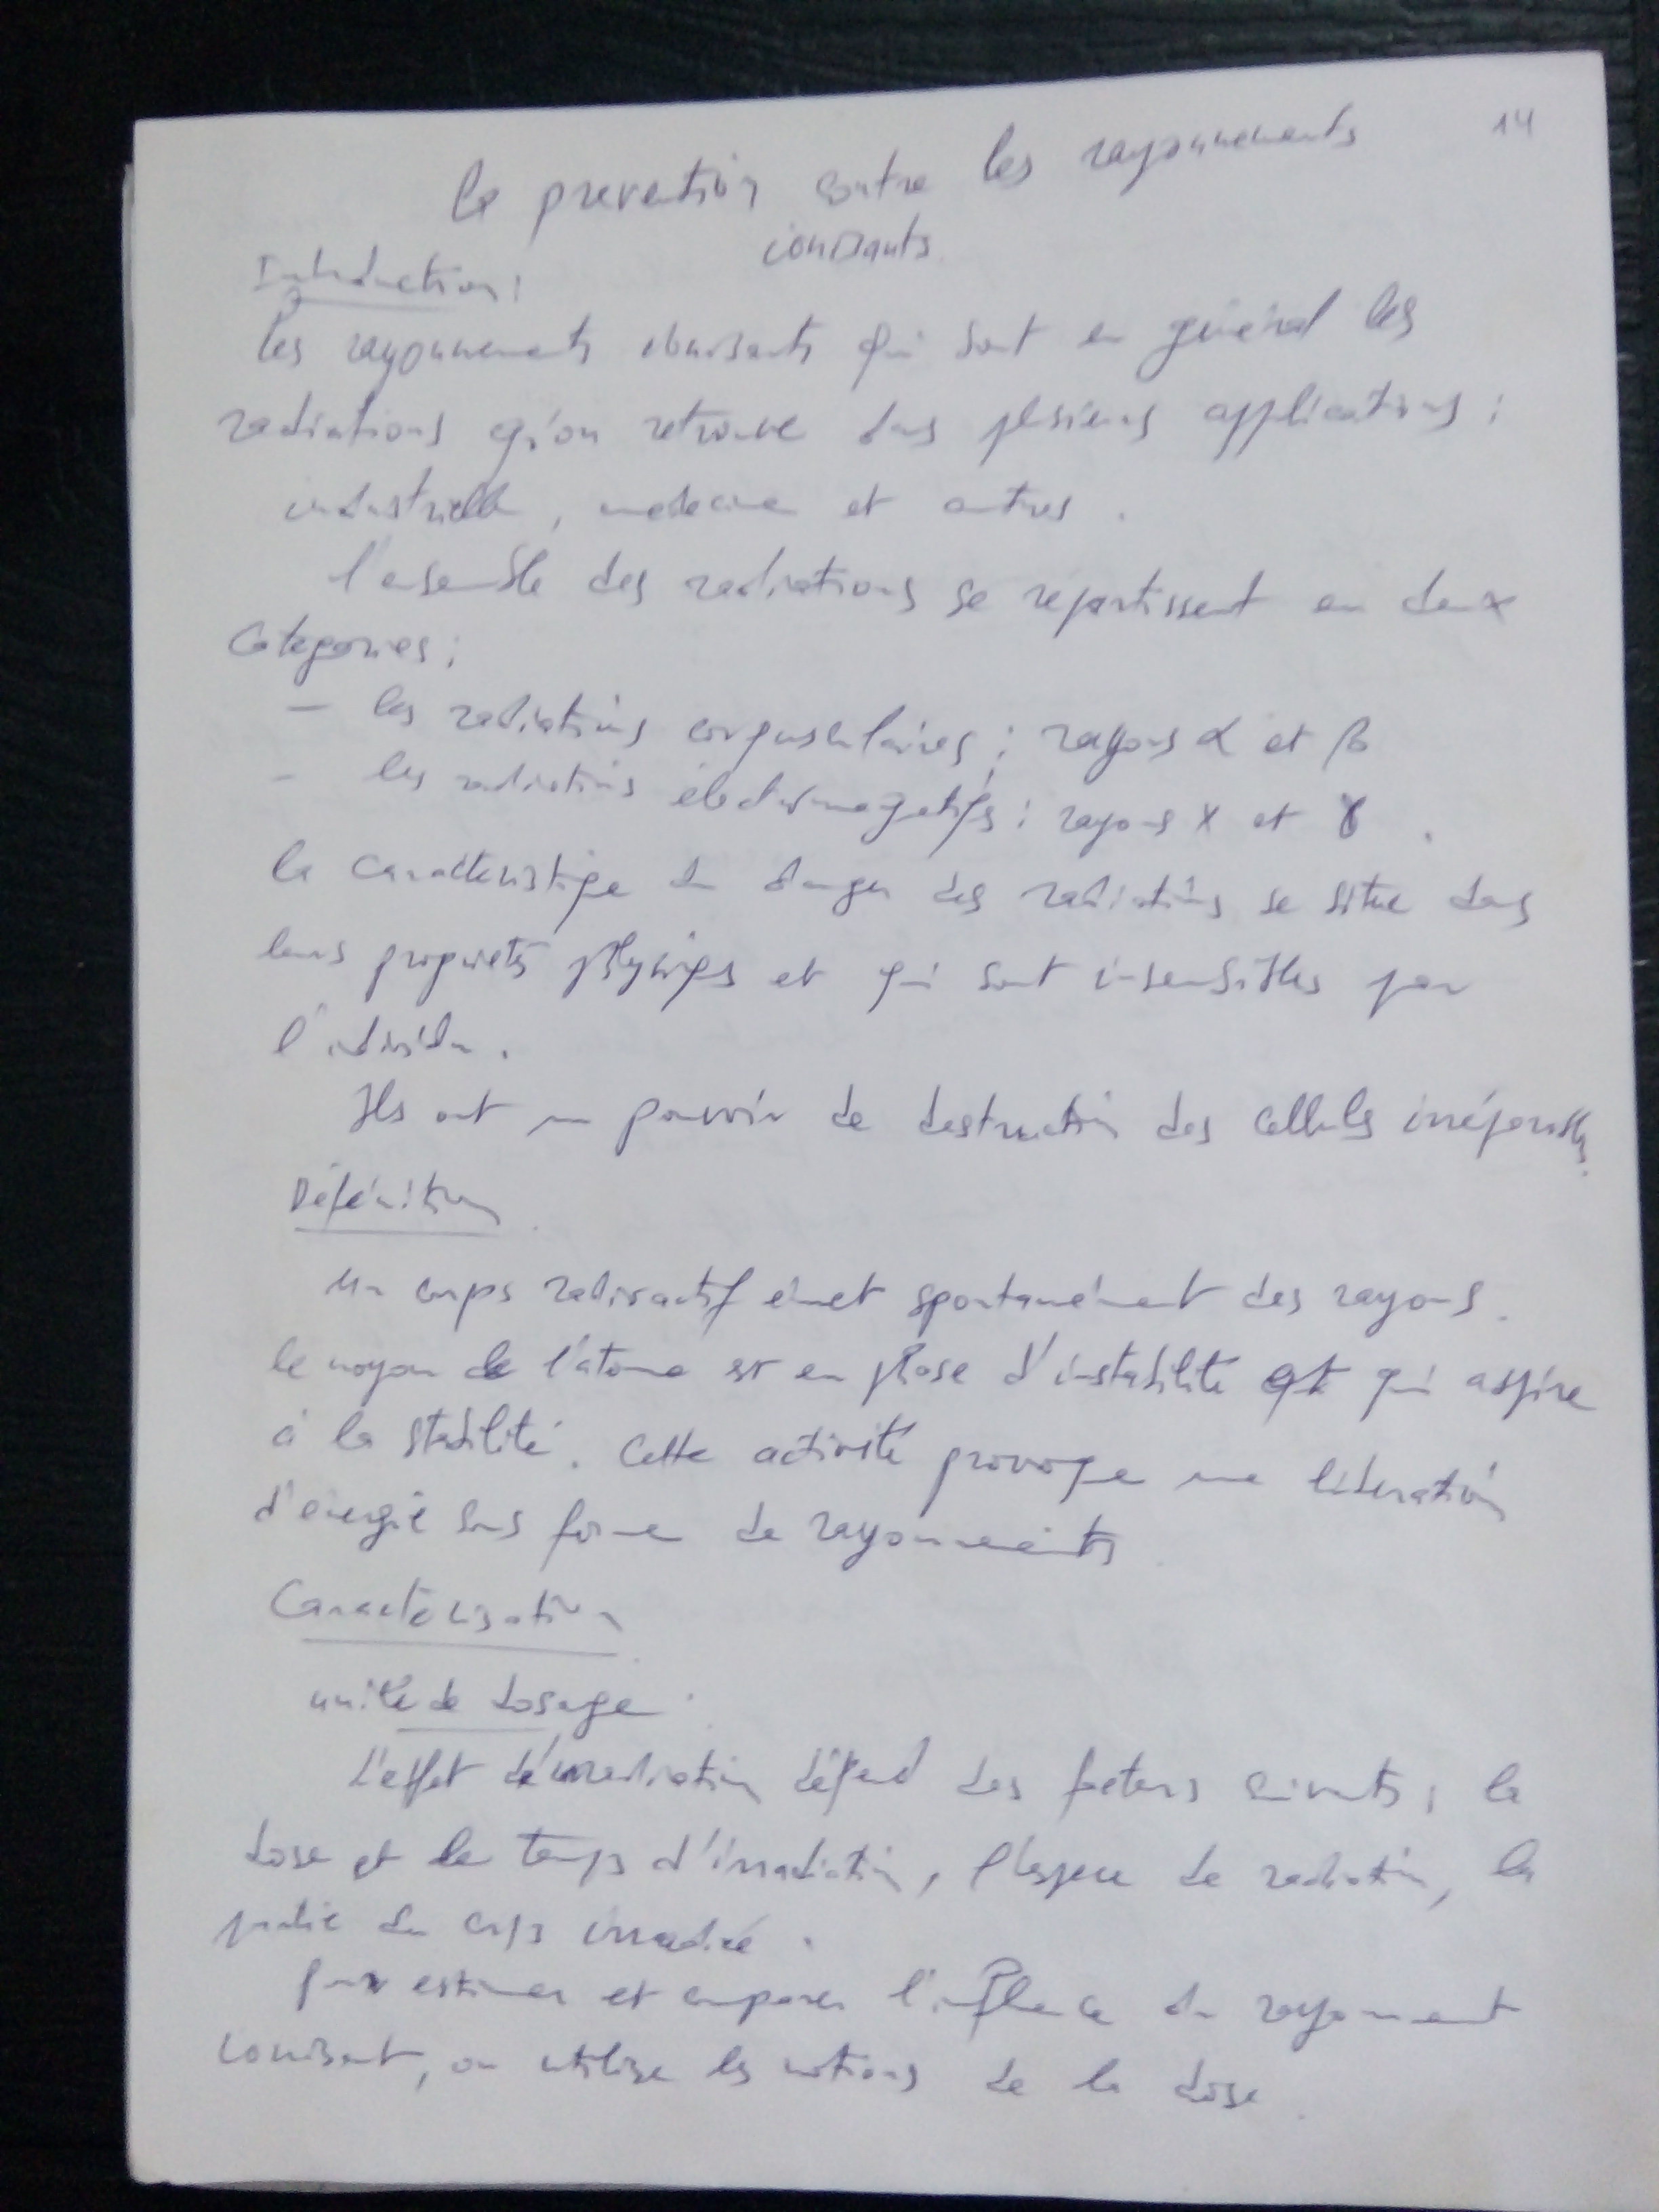 14
La prevention contre les rayonnements
ionisants.
Introduction :
Les rayonnements ionisants qui sont en général les
radiations qu'on retrouve dans plusieurs applications :
industrielle, medecine et autres.
l'ensemble des radiations se repartissent en deux
Categories :
- les radiations corpusculaires : rayons α et β
- les radiations électromagetiqs : rayons X et γ.
la caractéristique du danger des radiations se situe dans
leurs propriétés physiques et qui sont insensibles par
l'individu.
Ils ont un pouvoir de destruction des cellules irréparables.
Définition
Un corps radioactif émet spontanément des rayons.
le noyau de l'atome est en phase d'instabilité et qui aspire
à la stabilité. Cette activité provoque une libération
d'énergie sous forme de rayonnements.
Caractérisation
unité de dosage :
L'effet de irradiation dépend des facteurs suivants : la
dose et le temps d'irradiation, l'espece de radiation, la
partie du corps irradié.
pour estimer et comparer l'influence du rayonnement
ionisant, on utilise les notions de la dose.